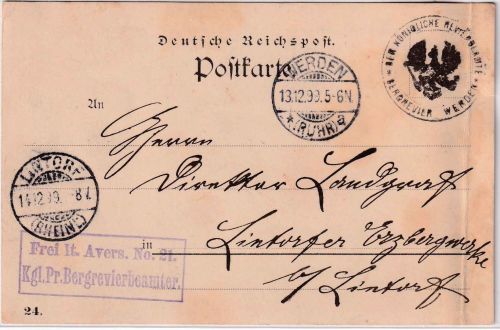 Deutsche Reichspost.
Postkarte
DER KÖNIGLICHE REVIERBEAMTE
BERGREVIER WERDEN
WERDEN
13.12.99.5-6N.
*(RUHR)a
An
Herrn
Direktor Landgraf
LINTORF
14.12.99. -8V.
(RHEINL)
in
Lintorfer Erzbergwerke
b/ Lintorf
Frei lt. Avers. No. 21.
Kgl. Pr. Bergrevierbeamter.
24.